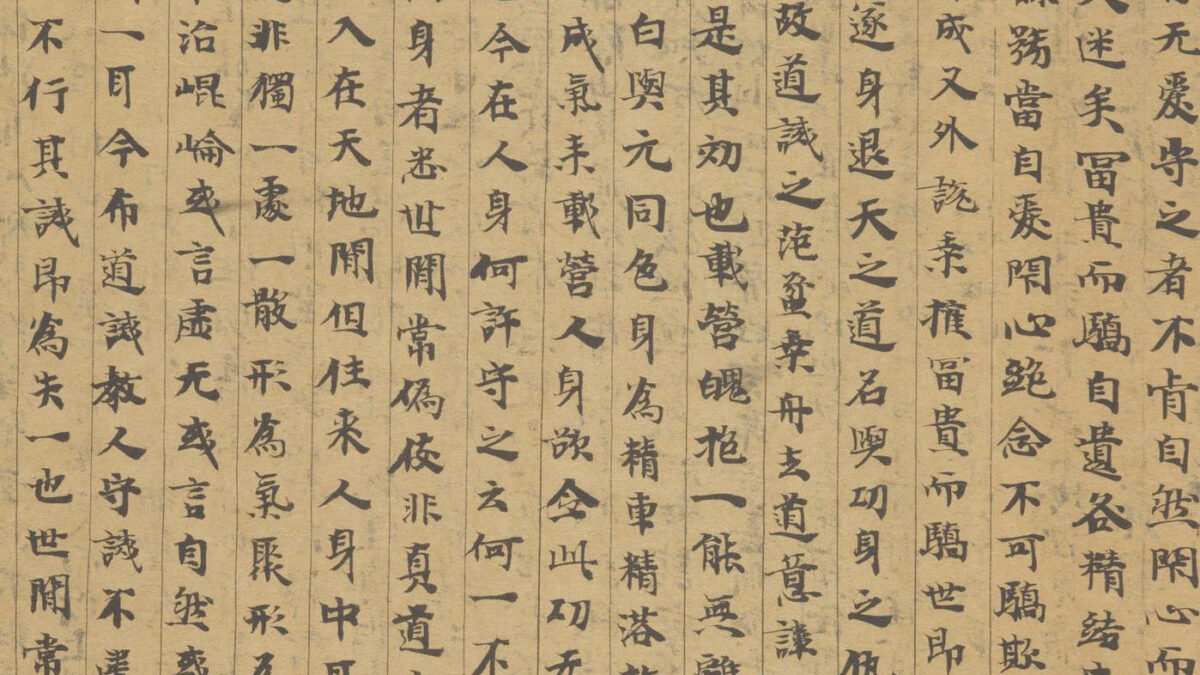 无愛守之者不肯自然閇心而
迷矣冨貴而驕自遺咎精結
務當自愛閇心絶念不可驕欺
成又外說秉權冨貴而驕世即
遂身退天之道名與功身之仇
故道誡之范蠡乘舟去道意謙
是其効也載營魄抱一能無離
白與元同色身為精車精落故
成氣来載營人身欲全此功无
今在人身何許守之云何一不
身者悉世閒常偽伎非真道
入在天地閒但往来人身中耳
非獨一處一散形為氣聚形為
治崐崘或言虛无或言自然或
一耳今布道誡教人守誡不違
不行其誡即為失一也世閒常